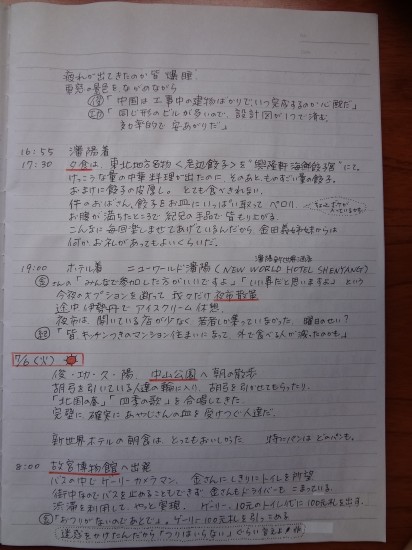 疲れが出てきたのか皆 爆睡
車窓の景色をながめながら
「中国は工事中の建物ばかりでいつ完成するのか心配だ」
「同じ形のビルが多いので、設計図が1つで済む、
効率的で 安あがりだ」
16:55 瀋陽着
17:30 夕食は、東北地方名物<老辺餃子>を
けっこうな量の中華料理が出たのに、そのあと、ものすごい量の餃子。
おまけに餃子の皮厚し。とても食べきれない。
件のおばさん、餃子をお皿にいっぱい取ってペロリ。
お腹が満ちたところで 紀兄の手品で皆もり上がる。
こんなに毎回楽しませてあげているんだから 金田義姉妹からは
何かお礼があってもよいくらいだ。
瀋陽新世界酒店
19:00 ホテル着 ニューワールド瀋陽 (NEW WORLD HOTEL SHENYANG)
さんの「みんなで参加した方がいいですよ」「いい事だと思いますよ」という
今夜のオプションを断って 我々だけ 夜市散策
途中 伊勢丹で アイスクリーム 休憩
夜市は、開いている店が少なく 若者しか集っていなかった。曜日のせい?
「皆、キッチンつきのマンション住まいになって 外で食べる人が減ったのかも」
7/6(火)
俊・功・久・陽 中山公園へ 朝の散歩
胡弓を引いている人達の輪に入り、胡弓を引かせてもらったり、
「北国の春」「四季の歌」を合唱してきた。
完璧に、確実に あやしさんの血を受けつぐ人達だ。
新世界ホテルの朝食は、とってもおいしかった 特にパンは どのパンも。
8:00 故宮博物館へ出発
バスの中で ゲーリーカメラマン 金さんにしきりにトイレを所望
街中なのでバスを止めることもできず 金さんもドライバーも こまっている。
渋滞を利用して、やっと実現。 ゲーリー、10元のトイレ代に100元札を出す。
「おつりがないのであとで」。ゲーリーに100元札を引っこめる
(迷惑をかけたんだから「つりはいらない」ぐらい言えよ